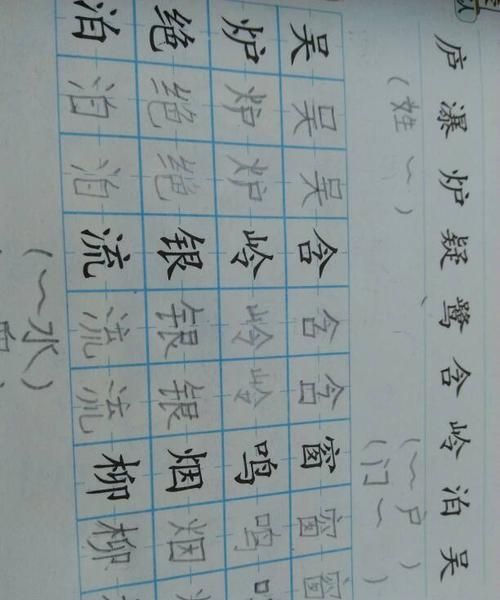 认
庐瀑炉疑鹭含岭泊吴
（姓～）
（～户）
（门～）
吴吴吴含含含窗窗窗
炉炉炉岭岭岭鸣鸣
绝绝绝银银银烟烟
泊泊泊流流流柳柳
（～水）